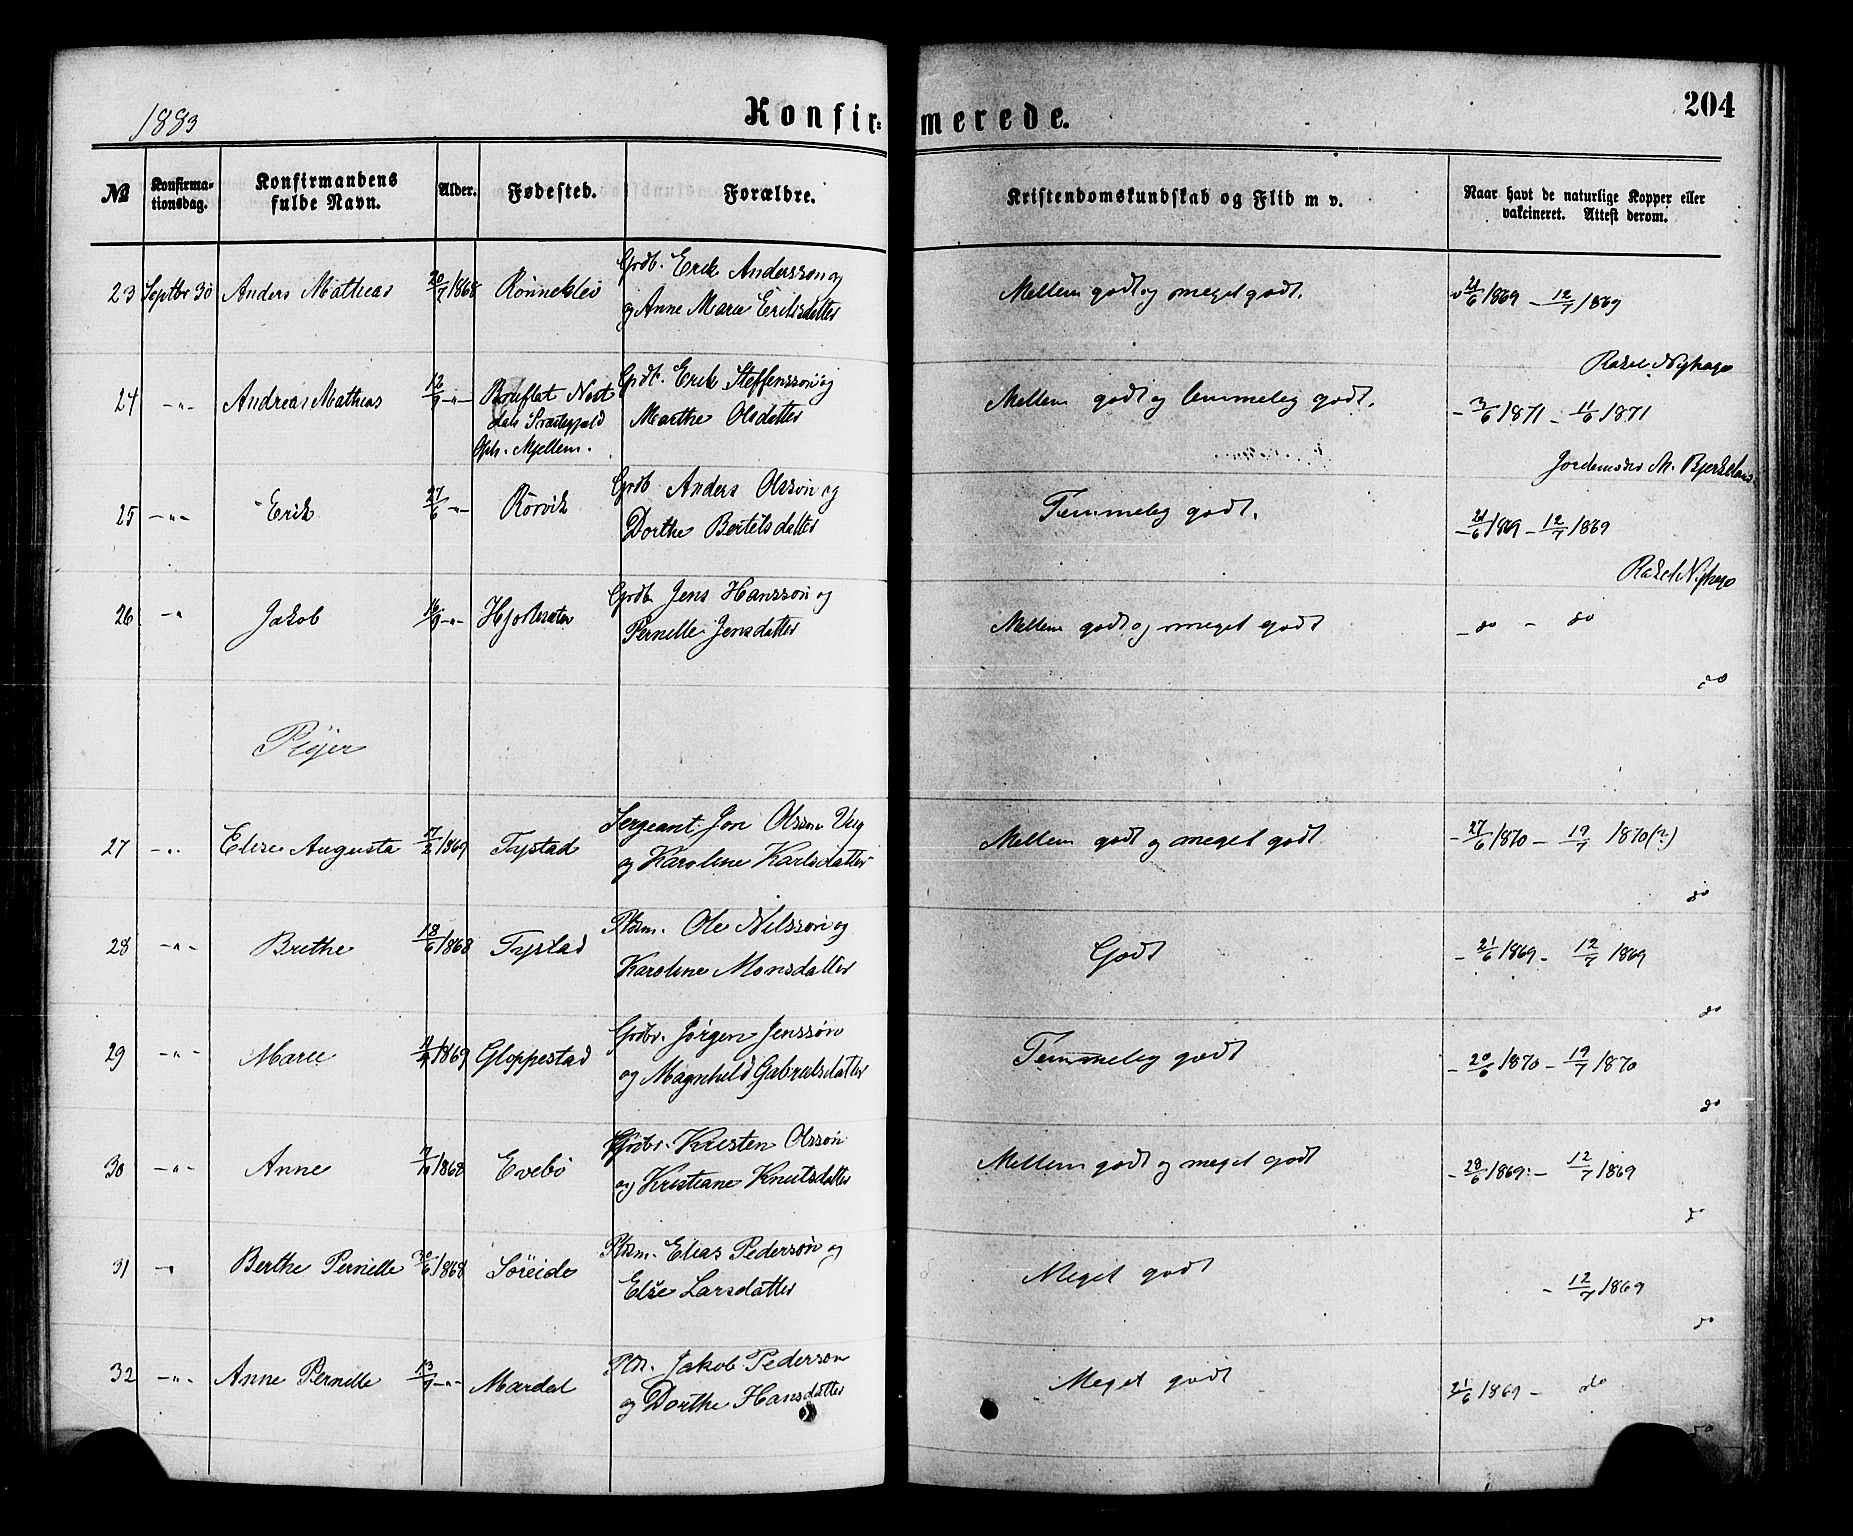 1883
Konfirmerede.
204
№
Konfirma-
tionsdag.
Konfirmandens
fulde Navn.
Alder.
Fødested.
Forældre.
Kristendomskundskab og Flid m v.
Naar havt de naturlige Kopper eller
vakcineret. Attest derom.
Grdb. Erik Anderssøn og
23 Septbr 30 Anders Mathias 20/7 1868 Rønneklev Mellem godt og meget godt. 21/6 1869 - 12/7 1869
og Anne Marie Eriksdatter
Rakel Nyhage
Grdb. Erik Steffenssøn og
24 -"- Andreas Mathias 12/9 -"- Bruflat Nord Mellem godt og temmelig godt. - 3/6 1871 - 11/6 1871
dals Præstegjæld Marthe Olsdatter
Oph. Mjellem.
Jordemoder M. Bjerkelans
Grdb Anders Olssøn og
25 -"- Erik 27/6 -"- Rørvik Temmelig godt. - 21/6 1869 - 12/7 1869
Dorthe Bertelsdatter
Rakel Nyhage
Grdb. Jens Hanssøn og
26 -"- Jakob 16/9 -"- Hjorteseter Mellem godt og meget godt - do - do
Pernelle Jensdatter
do
Piger
Sergeant Jon Olssøn Ung
27 -"- Elise Augusta 17/2 1869 Tystad Mellem godt og meget godt - 27/6 1870 - 19/7 1870(?)
og Karoline Karlsdatter
do
Pldsm. Ole Nilssøn og
28 -"- Brithe 18/6 1868 Tystad Godt - 21/6 1869 - 12/7 1869
Karoline Monsdatter
do
Grdbr. Jørgen Jenssøn
29 -"- Marie 1869 Gloppestad Temmelig godt - 20/6 1870 - 19/7 1870
og Magnhild Gabrielsdatter
do
Grdbr. Kristen Olssøn
30 -"- Anne 1868 Evebø Mellem godt og meget godt - 28/6 1869 - 12/7 1869
og Kristiane Knutsdatter
do
Pldsm. Elias Pederssøn og
31 -"- Berthe Pernille 30/6 1868 Søreide Meget godt - 12/7 1869
Else Larsdatter
do
Jakob Pederssøn
32 -"- Anne Pernille 13/9 -"- Mardal Meget godt 21/6 1869 - do
og Dorthe Hansdatter
do